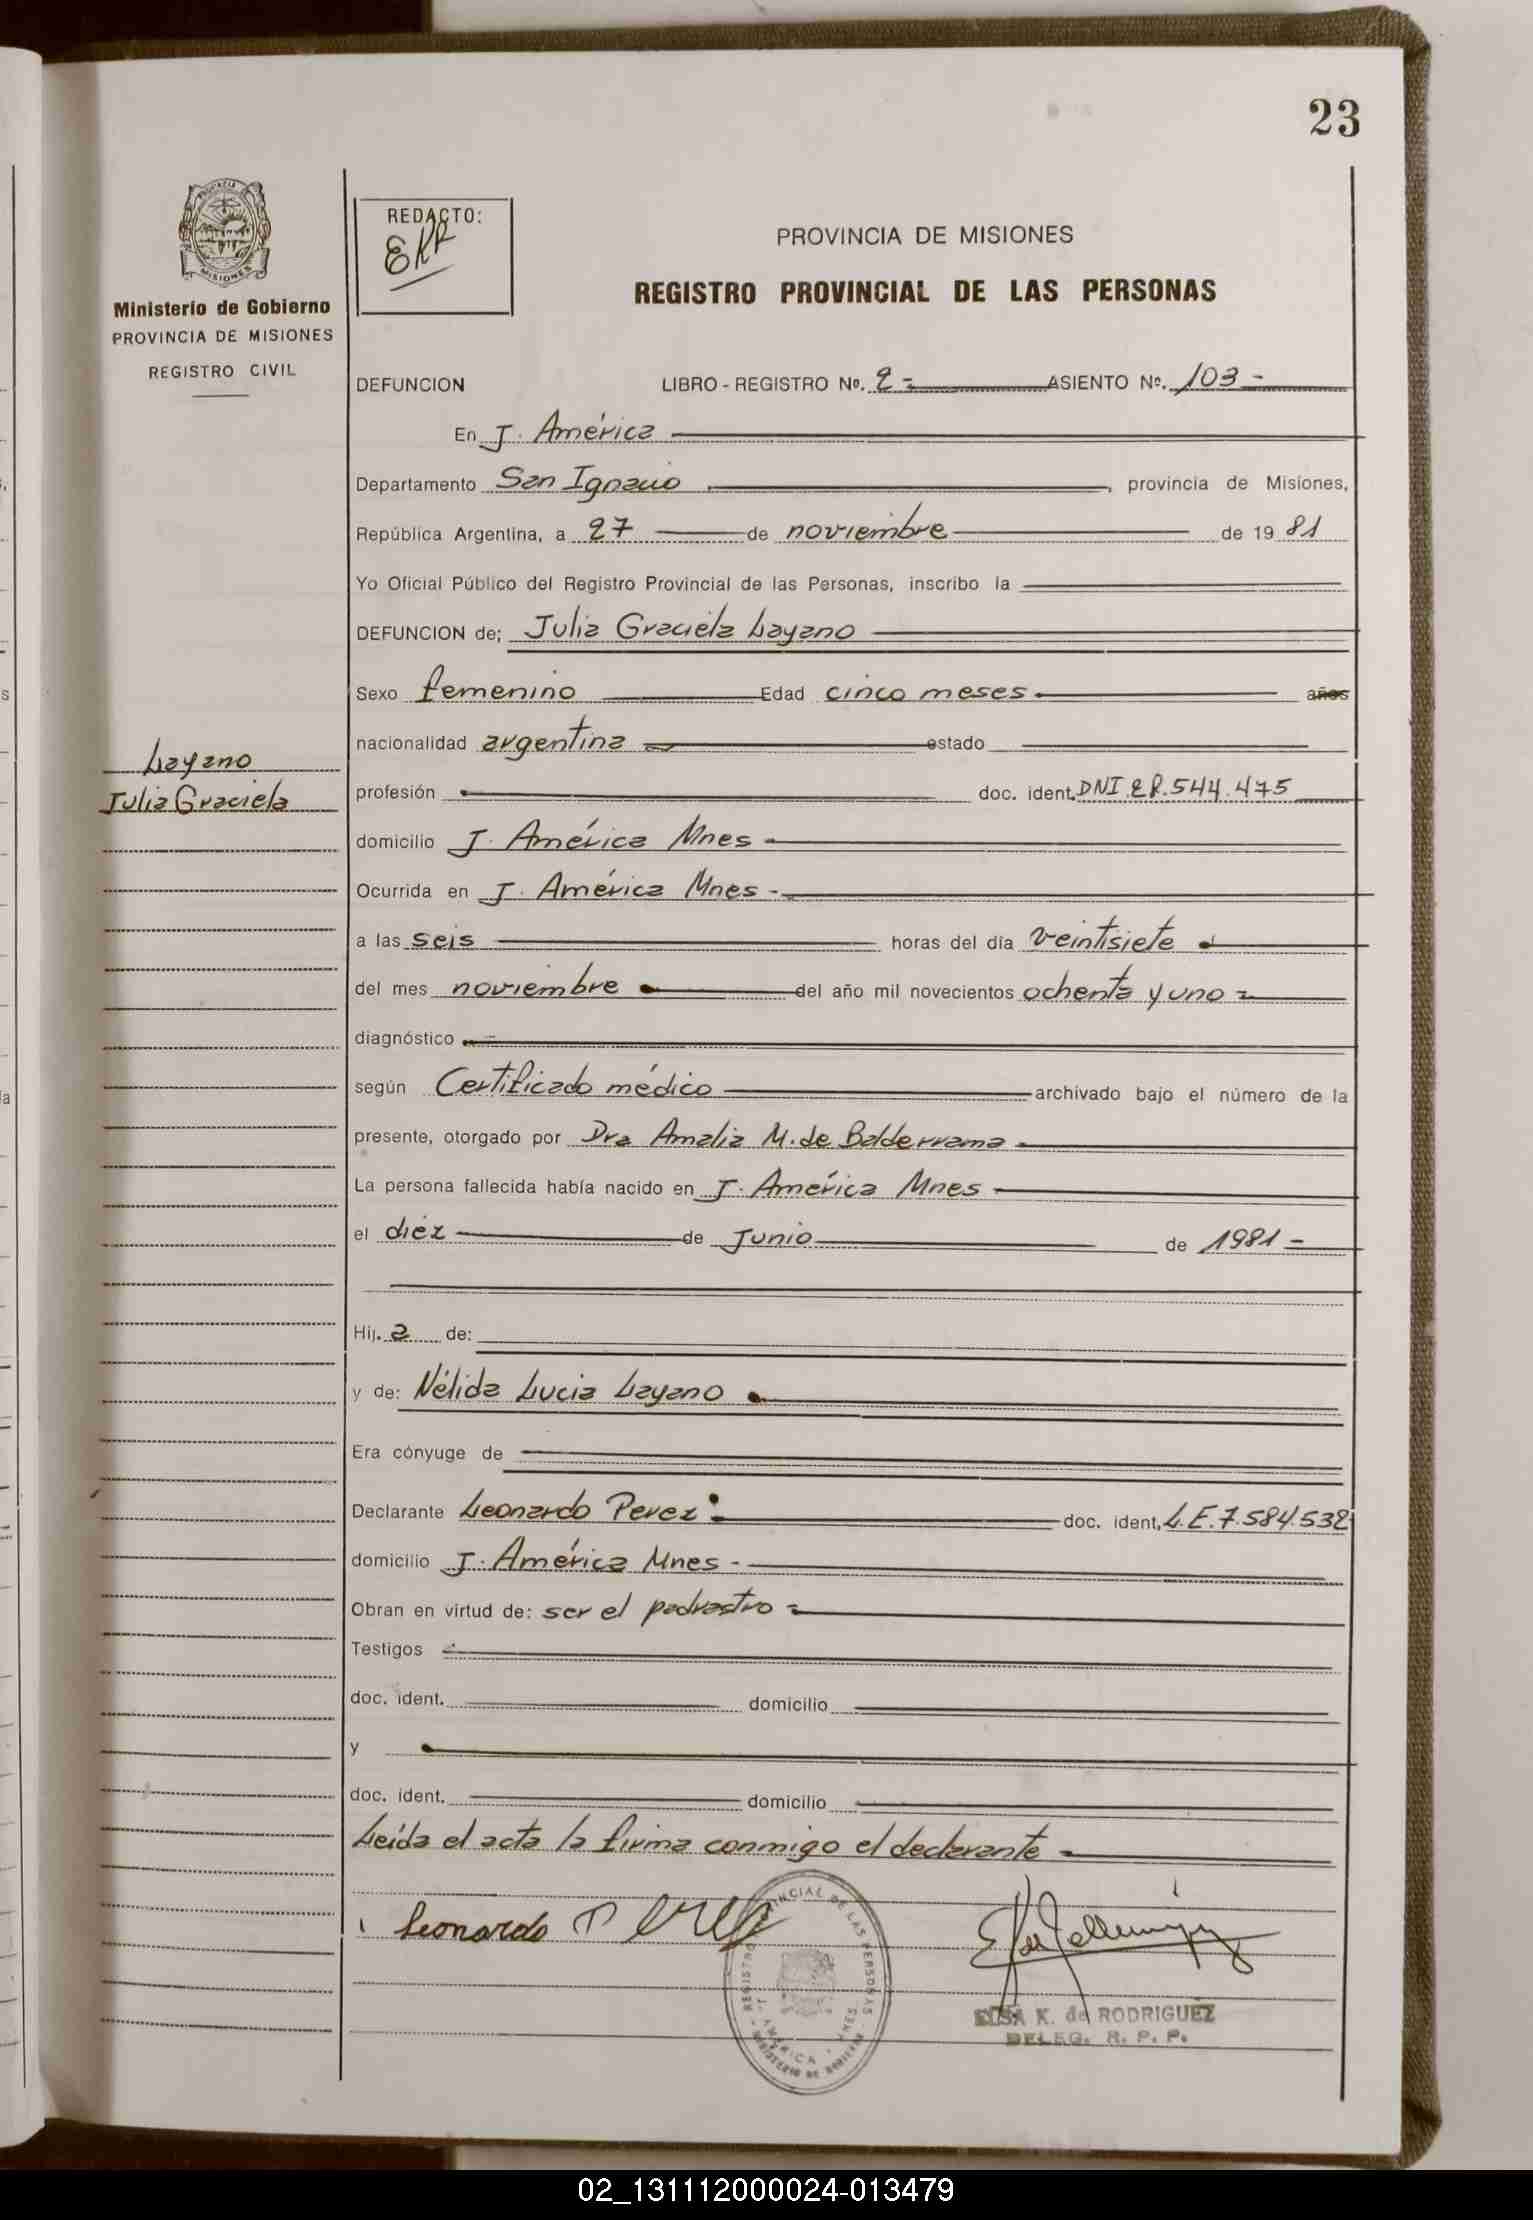 23
PROVINCIA DE
MISIONES
Ministerio de Gobierno
PROVINCIA DE MISIONES
REGISTRO CIVIL
REDACTO:
EKR
PROVINCIA DE MISIONES
REGISTRO PROVINCIAL DE LAS PERSONAS
DEFUNCION LIBRO - REGISTRO Nº. 2 - ASIENTO Nº. 103 -
En J. América
Departamento San Ignacio, provincia de Misiones,
República Argentina, a 27 de noviembre de 19 81
Yo Oficial Público del Registro Provincial de las Personas, inscribo la
DEFUNCION de; Julia Graciela Layano
Sexo femenino Edad cinco meses años
nacionalidad argentina estado
Layano
Julia Graciela
profesión doc. ident. DNI 28.544.475
domicilio J. América Mnes -
Ocurrida en J. América Mnes -
a las seis horas del día veintisiete
del mes noviembre del año mil novecientos ochenta y uno
diagnóstico
según Certificado médico archivado bajo el número de la
presente, otorgado por Dra Amalia M. de Balderrama
La persona fallecida había nacido en J. América Mnes
el diez de Junio de 1981 -
Hij. a de:
y de: Nélida Lucia Layano
Era cónyuge de
Declarante Leonardo Perez doc. ident. L.E. 7.584.532
domicilio J. América Mnes -
Obran en virtud de: ser el padrastro
Testigos
doc. ident. domicilio
y
doc. ident. domicilio
Leída el acta la firma conmigo el declarante
Leonardo Perez
REGISTRO PROVINCIAL DE LAS PERSONAS
MINISTERIO DE GOBIERNO
J. AMERICA - MNES
ELSA K. de RODRIGUEZ
DELEG. R. P. P.
02_131112000024-013479